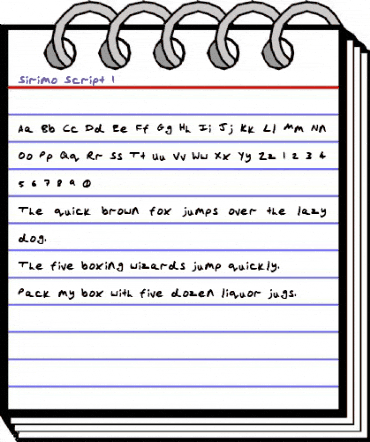 Sirimo Script 1
Aa Bb Cc Dd Ee Ff Gg Hh Ii Jj Kk Ll Mm Nn
Oo Pp Qq Rr Ss Tt Uu Vv Ww Xx Yy Zz 1 2 3 4
5 6 7 8 9 0
The quick brown fox jumps over the lazy
dog.
The five boxing wizards jump quickly.
Pack my box with five dozen liquor jugs.